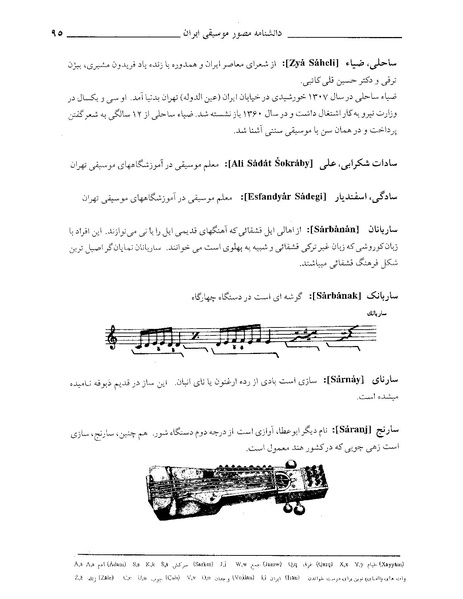 دانشنامه مصور موسیقی ایران ۹۵
ساحلی، ضیاء [Zyâ Sâheli]: از شعرای معاصر ایران و همدوره با زنده یاد فریدون مشیری، بیژن
ترقی و دکتر حسین قلی کاتبی.
ضیاء ساحلی در سال ۱۳۰۷ خورشیدی در خیابان ایران (عین الدوله) تهران بدنیا آمد. او سی و یکسال در
وزارت نیرو به کار اشتغال داشت و در سال ۱۳۶۰ باز نشسته شد. ضیاء ساحلی از ۱۲ سالگی به شعر گفتن
پرداخت و در همان سن با موسیقی سنتی آشنا شد.
سادات شکرابی، علی [Ali Sâdât Šokrâby]: معلم موسیقی در آموزشگاههای موسیقی تهران
سادگی، اسفندیار [Esfandyâr Sâdegi]: معلم موسیقی در آموزشگاههای موسیقی تهران
ساربانان [Sârbânân]: از اهالی ایل قشقائی که آهنگهای قدیمی ایل را با نی می‌نوازند. این افراد با
زبان کوروشی که زبان غیر ترکی قشقائی و شبیه به پهلوی است می خوانند. ساربانان نمایان‌گر اصیل ترین
شکل فرهنگ قشقائی میباشند.
ساربانک [Sârbânak]: گوشه ای است در دستگاه چهارگاه
ساربانک
سارنای [Sârnây]: سازی است بادی از رده ارغنون یا نای انبان. این ساز در قدیم ذیوفه نامیده
میشده است.
سارنج [Sâranj]: نام دیگر ابوعطا، آوازی است از درجه دوم دستگاه شور. هم چنین، سارنج، سازی
است زهی چوبی که در کشور هند معمول است.